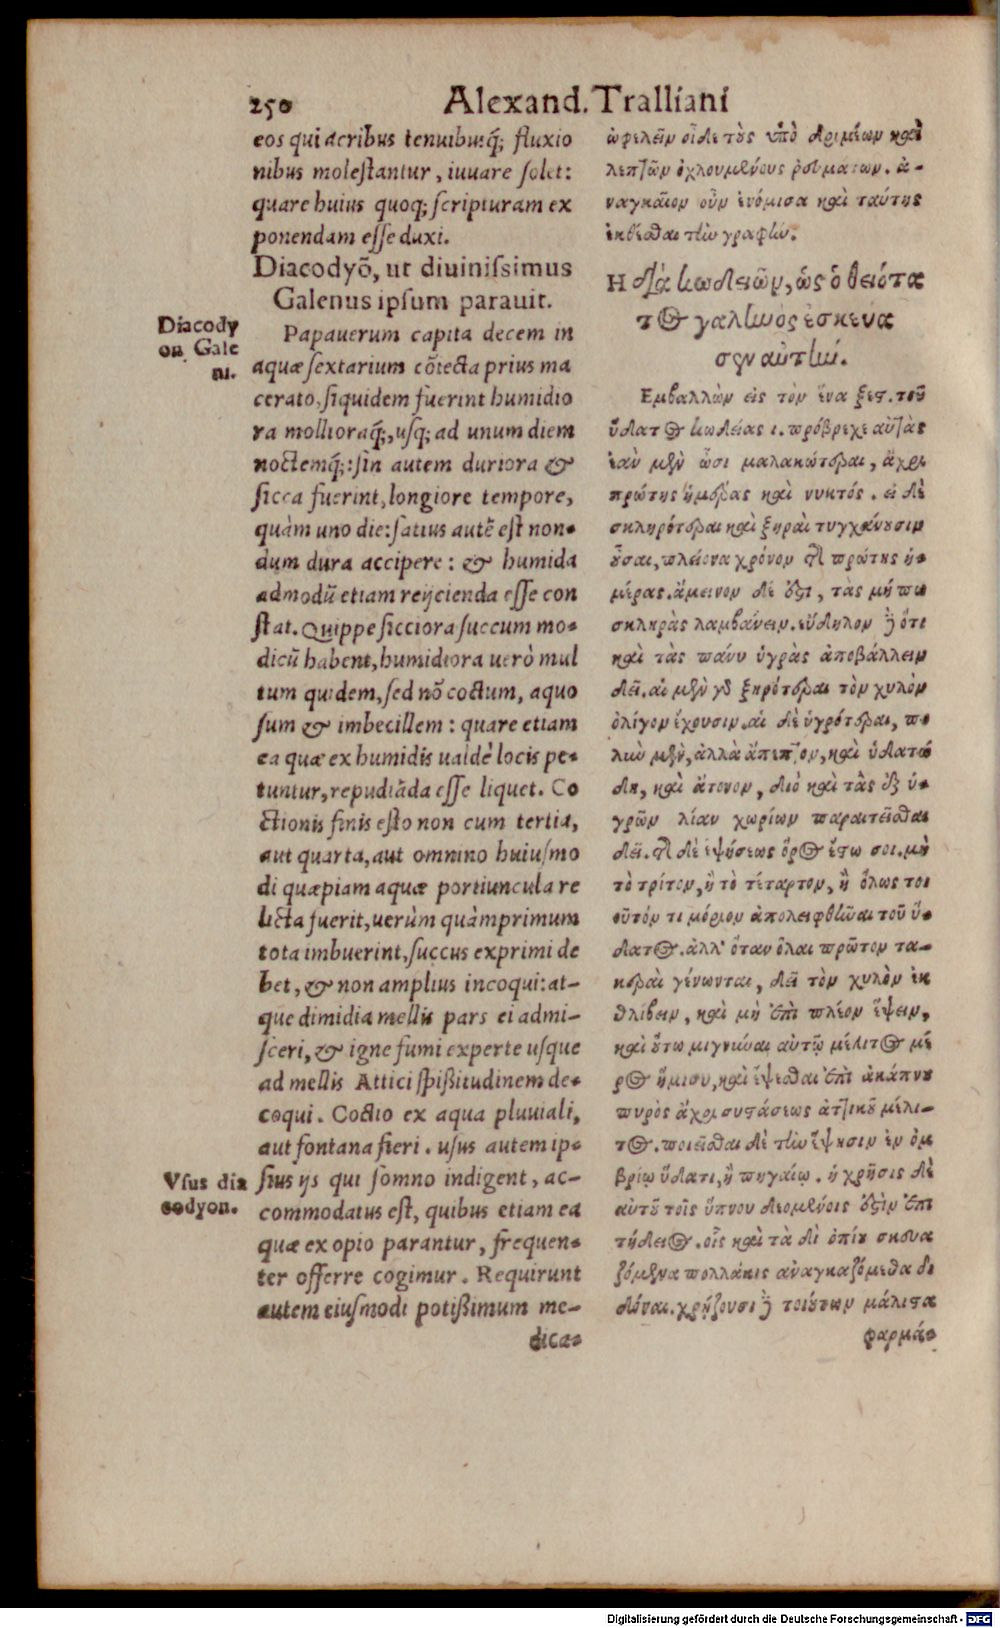 250 Alexand. Tralliani
eos qui acribus tenuibusq́; fluxio
nibus molestantur, iuuare solet:
quare huius quoq; scripturam ex
ponendam esse duxi.
Diacodyō, ut diuinissimus
Galenus ipsum parauit.
Diacody
on Gale
ni.
Papauerum capita decem in
aquæ sextarium cōiecta prius ma
cerato, siquidem fuerint humidio
ra mollioraq́;, usq; ad unum diem
noctemq́;: sin autem duriora &
sicca fuerint, longiore tempore,
quàm uno die: satius autē est non-
dum dura accipere: & humida
admodū etiam reijcienda esse con
stat. Quippe sicciora succum mo-
dicū habent, humidiora uerò mul
tum quidem, sed nō coctum, aquo
sum & imbecillem: quare etiam
ea quæ ex humidis ualdè locis pe-
tuntur, repudiāda esse liquet. Co
ctionis finis esto non cum tertia,
aut quarta, aut omnino huiusmo
di quæpiam aquæ portiuncula re
licta fuerit, uerùm quàmprimum
tota imbuerint, succus exprimi de
bet, & non amplius incoqui: at-
que dimidia mellis pars ei admi-
sceri, & igne fumi experte usque
ad mellis Attici spißitudinem de-
coqui. Coctio ex aqua pluuiali,
aut fontana fieri. usus autem ip-
Vsus dia
codyon.
sius ijs qui somno indigent, ac-
commodatus est, quibus etiam ea
quæ ex opio parantur, frequen-
ter offerre cogimur. Requirunt
autem eiusmodi potißimum me-
dica-
ὠφελεῖν οἶδε τοὺς ὑπὸ δριμέων καὶ
λεπτῶν ὀχλουμένους ῥευμάτων. ἀ-
ναγκαῖον οὖν ἐνόμισα καὶ ταύτης
ἐκθέσθαι τὴν γραφήν.
Η διὰ κωδειῶν, ὡς ὁ θειότα
τος γαληνὸς ἐσκεύα
σεν αὐτήν.
Εμβαλλὼν εἰς τὸν ἕνα ξεστ. τοῦ
ὕδατος κωδείας ι. πρόβρεχε αὐτὰς
ἐὰν μὲν ὦσι μαλακώτεραι, ἄχρι
πρώτης ἡμέρας καὶ νυκτός. εἰ δὲ
σκληρότεραι καὶ ξηραὶ τυγχάνουσιν
οὖσαι, πλείονα χρόνον τῆς πρώτης ἡ-
μέρας. ἄμεινον δέ ἐστι, τὰς μήπω
σκληρὰς λαμβάνειν. εὔδηλον δὲ ὅτι
καὶ τὰς πάνυ ὑγρὰς ἀποβάλλειν
δεῖ. αἱ μὲν γὰρ ξηρότεραι τὸν χυλὸν
ὀλίγον ἔχουσιν. αἱ δὲ ὑγρότεραι, πο
λὺν μὲν, ἀλλὰ ἄπεπτον, καὶ ὑδατώ
δη, καὶ ἄτονον, διὸ καὶ τὰς ἐξ ὑ-
γρῶν λίαν χωρίων παραιτεῖσθαι
δεῖ. τῆς δὲ ἑψήσεως ὅρος ἔστω σοι. μὴ
τὸ τρίτον, ἢ τὸ τέταρτον, ἢ ὅλως τοι
οῦτόν τι μόριον ἀπολειφθῆναι τοῦ ὕ-
δατος. ἀλλ' ὅταν ὅλαι πρῶτον τα-
κεραὶ γένωνται, δεῖ τὸν χυλὸν ἐκ
θλίβειν, καὶ μὴ ἐπὶ πλέον ἕψειν,
καὶ οὕτω μιγνύναι αὐτῷ μέλιτος μέ
ρος ἥμισυ, καὶ ἕψεσθαι ἐπὶ ἀκάπνου
πυρὸς ἄχρι συστάσεως ἀττικοῦ μέλι-
τος. ποιεῖσθαι δὲ τὴν ἕψησιν ἐν ὀμ
βρίῳ ὕδατι, ἢ πηγαίῳ. ἡ χρῆσις δὲ
αὐτοῦ τοῖς ὕπνου δεομένοις ἐστὶν ἐπι
τήδειος. οἷς καὶ τὰ δι' ὀπίου σκευα
ζόμενα πολλάκις ἀναγκαζόμεθα δι
δόναι. χρήζουσι δὲ τοιούτων μάλιστα
φαρμά-
Digitalisierung gefördert durch die Deutsche Forschungsgemeinschaft - DFG